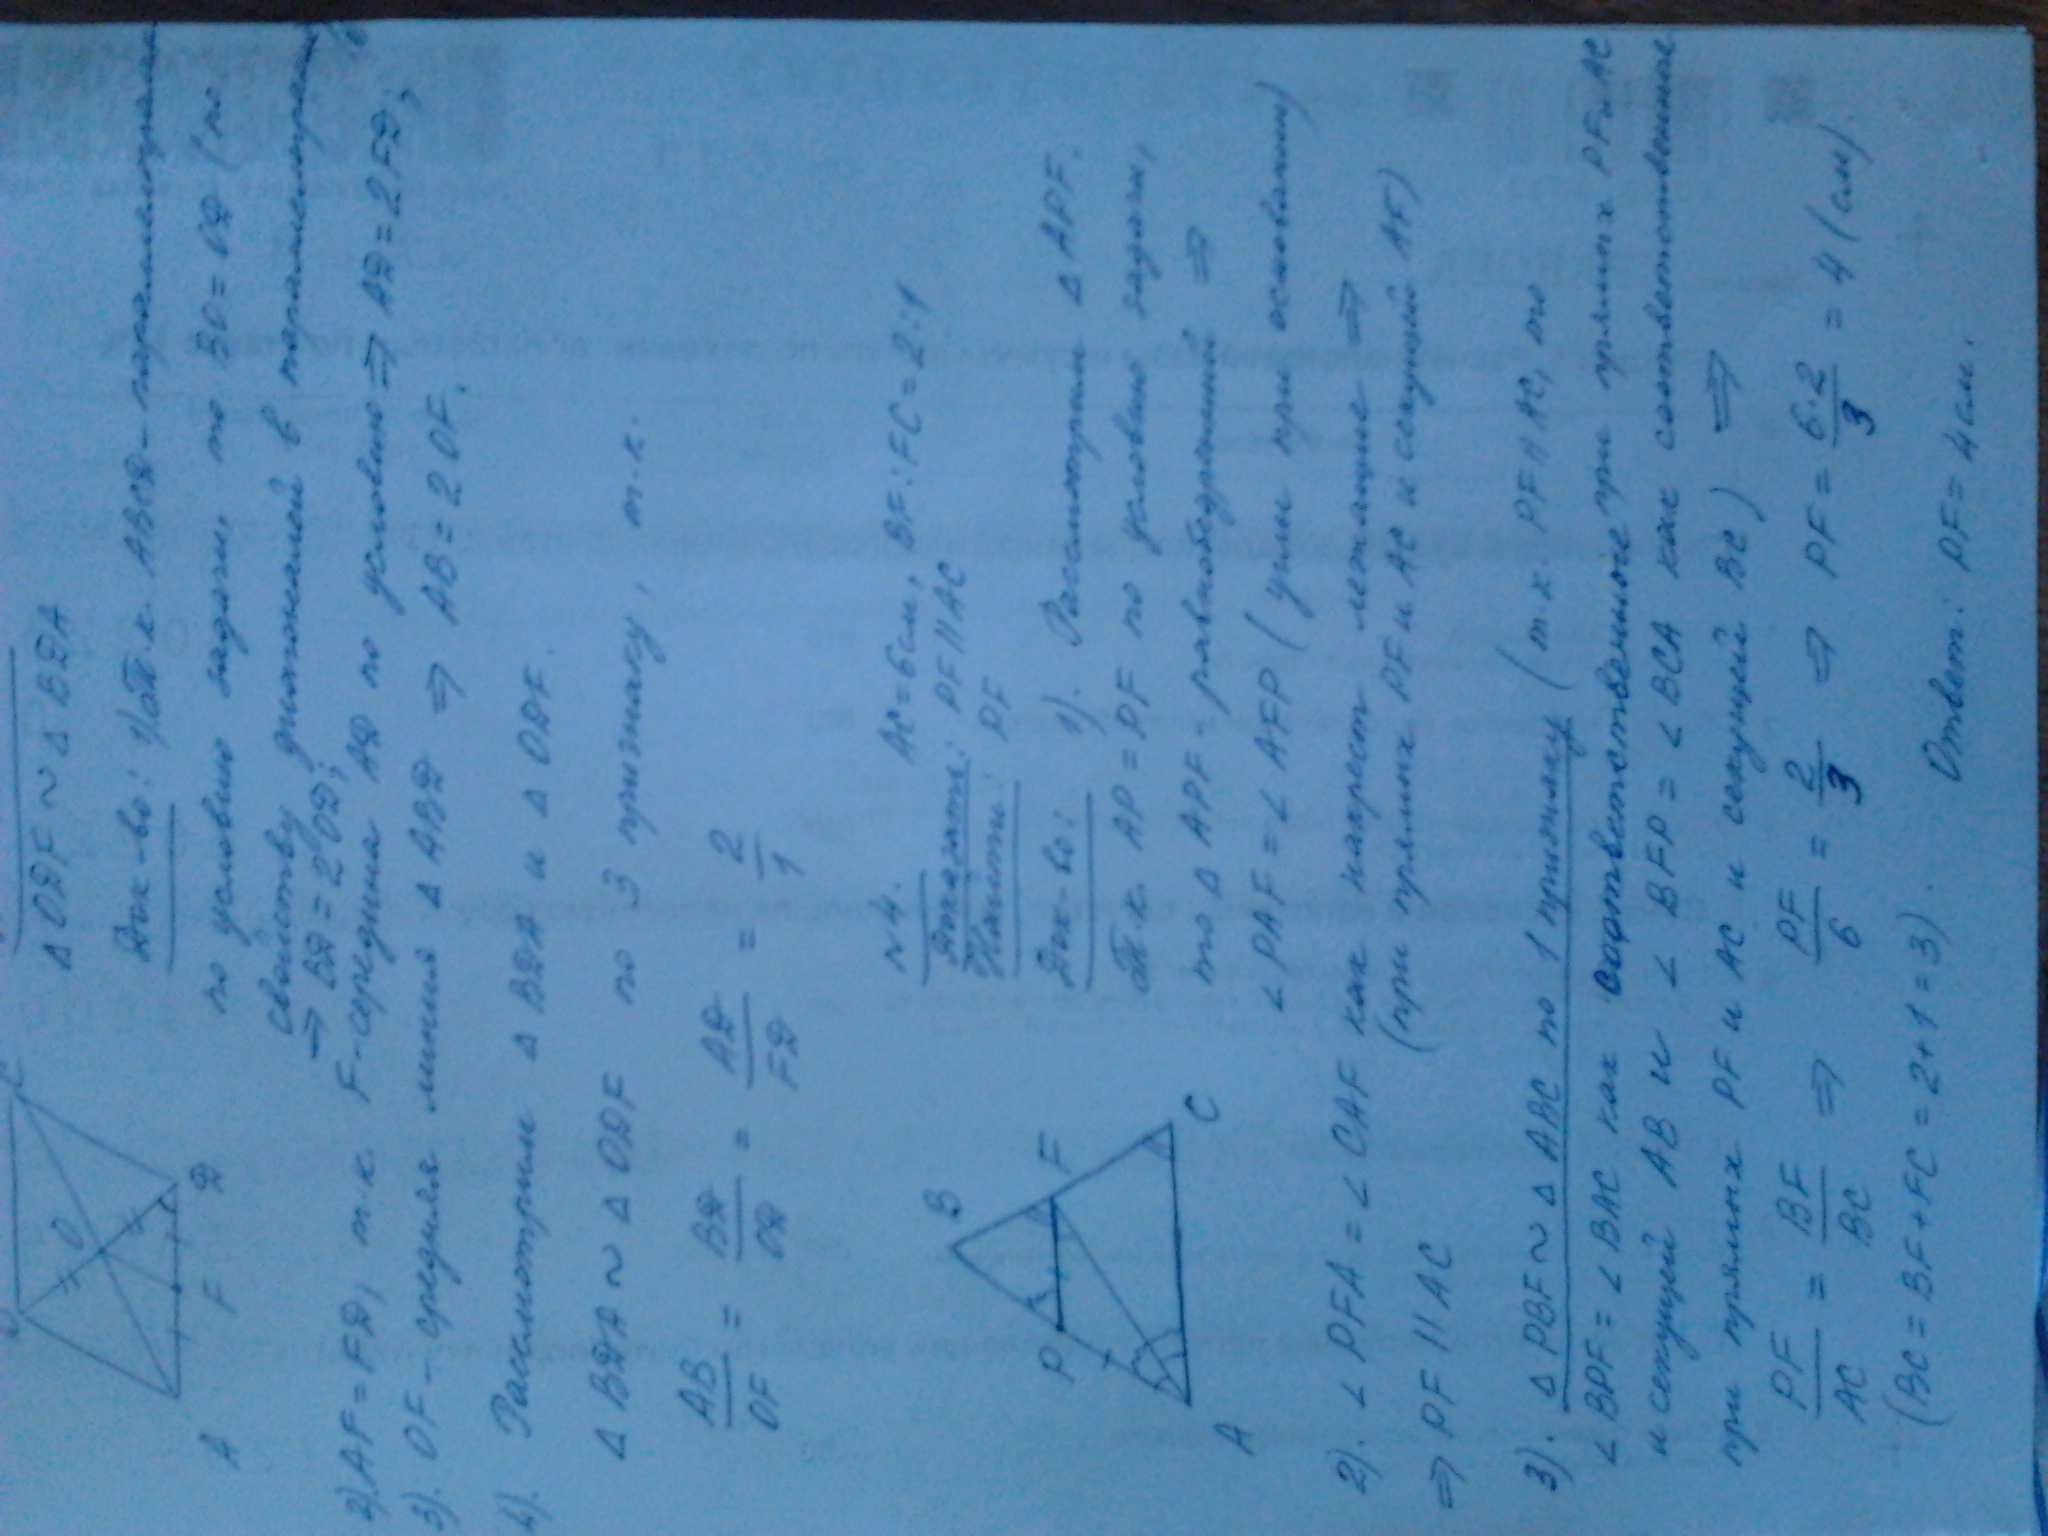 Δ ODF ~ Δ BDA
Док-во: 1) Т.к. ABCD - параллелограмм
по условию задачи, то BO = OD (по
свойству диагоналей в параллелограмме)
⇒ BD = 2 OD;
2) AF = FD, т.к. F - середина AD по условию ⇒ AD = 2 FD;
3). OF - средняя линия Δ ABD ⇒ AB = 2 OF.
4). Рассмотрим Δ BDA и Δ ODF.
Δ BDA ~ Δ ODF по 3 признаку, т.к.
AB/OF = BD/OD = AD/FD = 2/1
A
F
D
O
C
№4. AC = 6 см, BF : FC = 2:1
Доказать: PF || AC
Найти: PF
Док-во: 1). Рассмотрим Δ APF.
Т.к. AP = PF по условию задачи,
то Δ APF - равнобедренный ⇒
∠ PAF = ∠ AFP (углы при основании)
B
P
F
A
C
2). ∠ PFA = ∠ CAF как накрест лежащие ⇒
(при прямых PF и AC и секущей AF)
⇒ PF || AC
3). Δ PBF ~ Δ ABC по 1 признаку (т.к. PF || AC, то
∠ BPF = ∠ BAC как соответственные при прямых PF и AC
и секущей AB и ∠ BFP = ∠ BCA как соответственные
при прямых PF и AC и секущей BC) ⇒
PF/AC = BF/BC ⇒ PF/6 = 2/3 ⇒ PF = 6·2/3 = 4 (см)
(BC = BF + FC = 2+1 = 3).
Ответ: PF = 4 см.